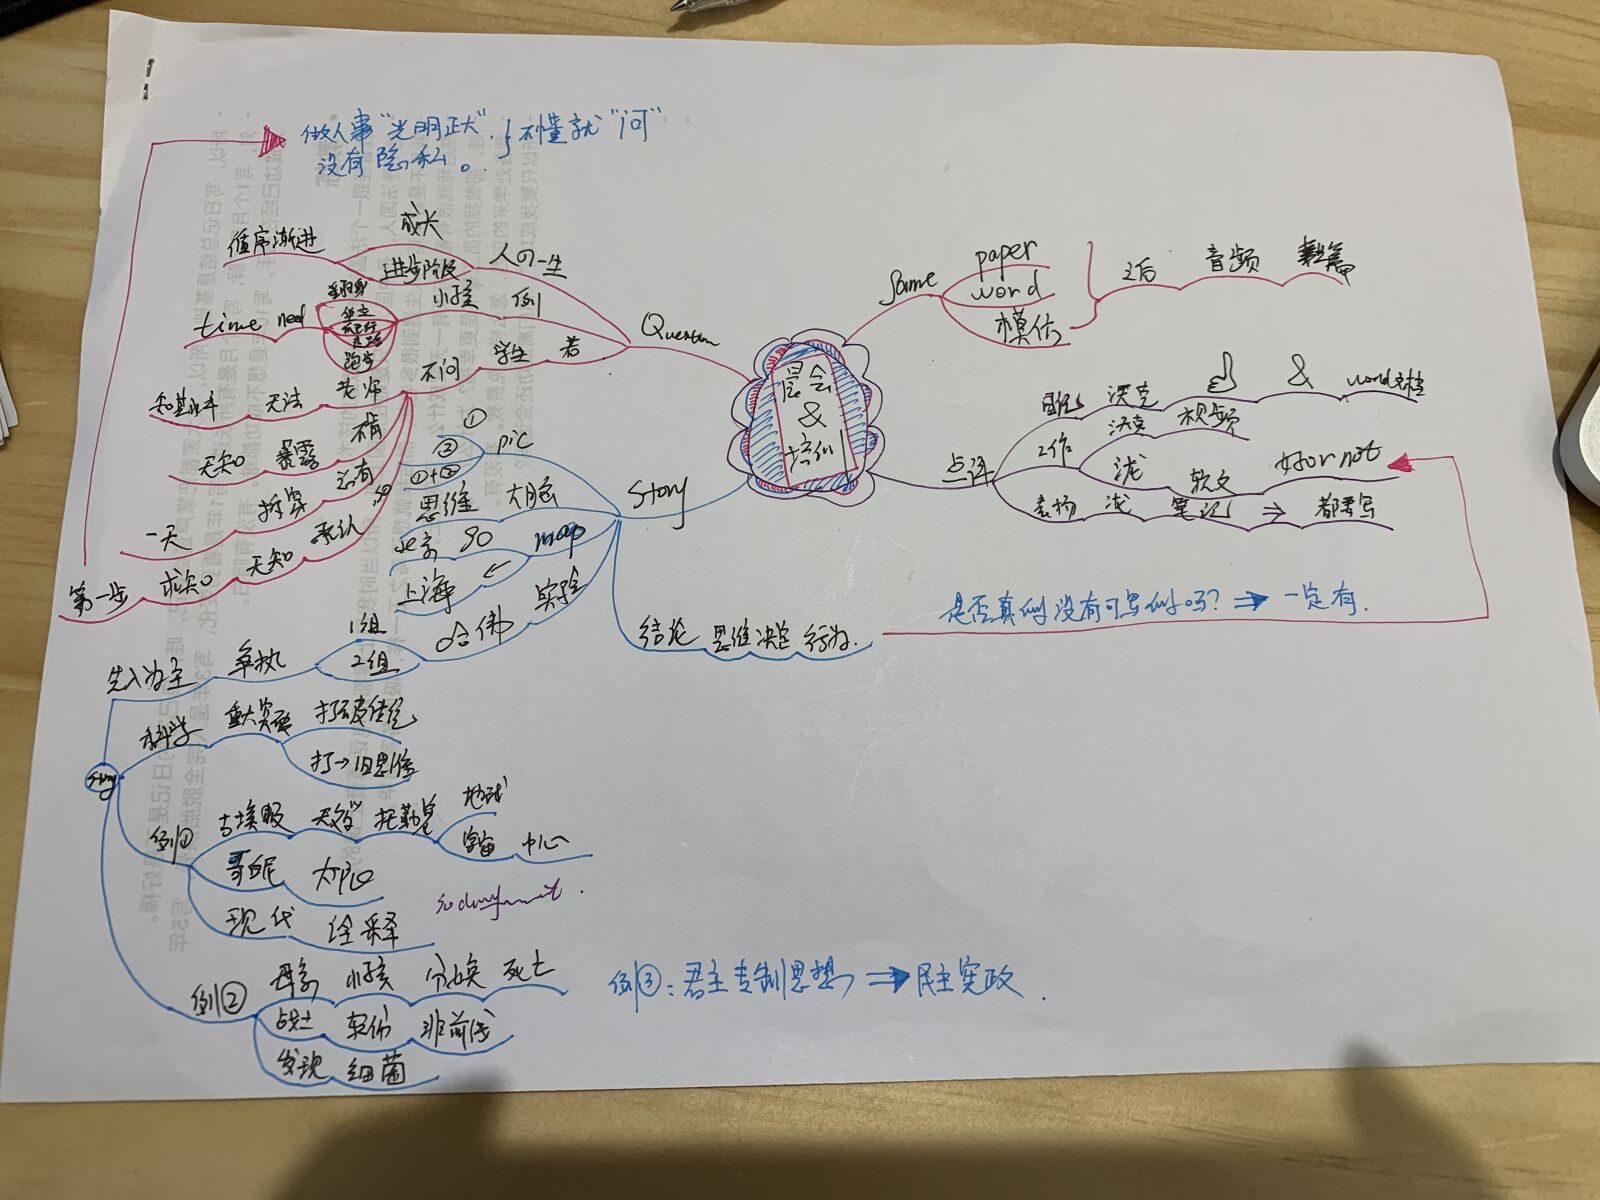 做人事“光明正大”.} 不懂就“问”
没有隐私。
晨会
&
培训
Same
paper
word
模仿
之后 音频
点评
沃克 & word文档
工作 沃克 视频
泷 软文 好or not
表扬 泷 笔记 ⇒ 都要写
Question
人の一生
成长
进步阶段
循序渐进
例 小孩
坐立
跑步
need time
若 学生 不问
老师 无法 知其水平
不肯 暴露 无知
总有 拆穿 一天
所以 承认 无知 求知 第一步
Story
pic
①
②
①+②
大脑 思维
map 90 北京
← 上海
实验 哈佛
1组
2组
争执 先入为主
结论 思维决定 行为.
是否真似没有可写似吗? ⇒ 一定有.
story
科学 重大突破 打破传统
打→旧思维
例① 古埃及 天文学 托勒密 地球
宇宙 中心
哥白尼 太阳
现代 诠释
例② 母亲 小孩 分娩 死亡
战士 轻伤 非前线
发现 细菌
例③:君主专制思想 ⇒ 民主宪政.